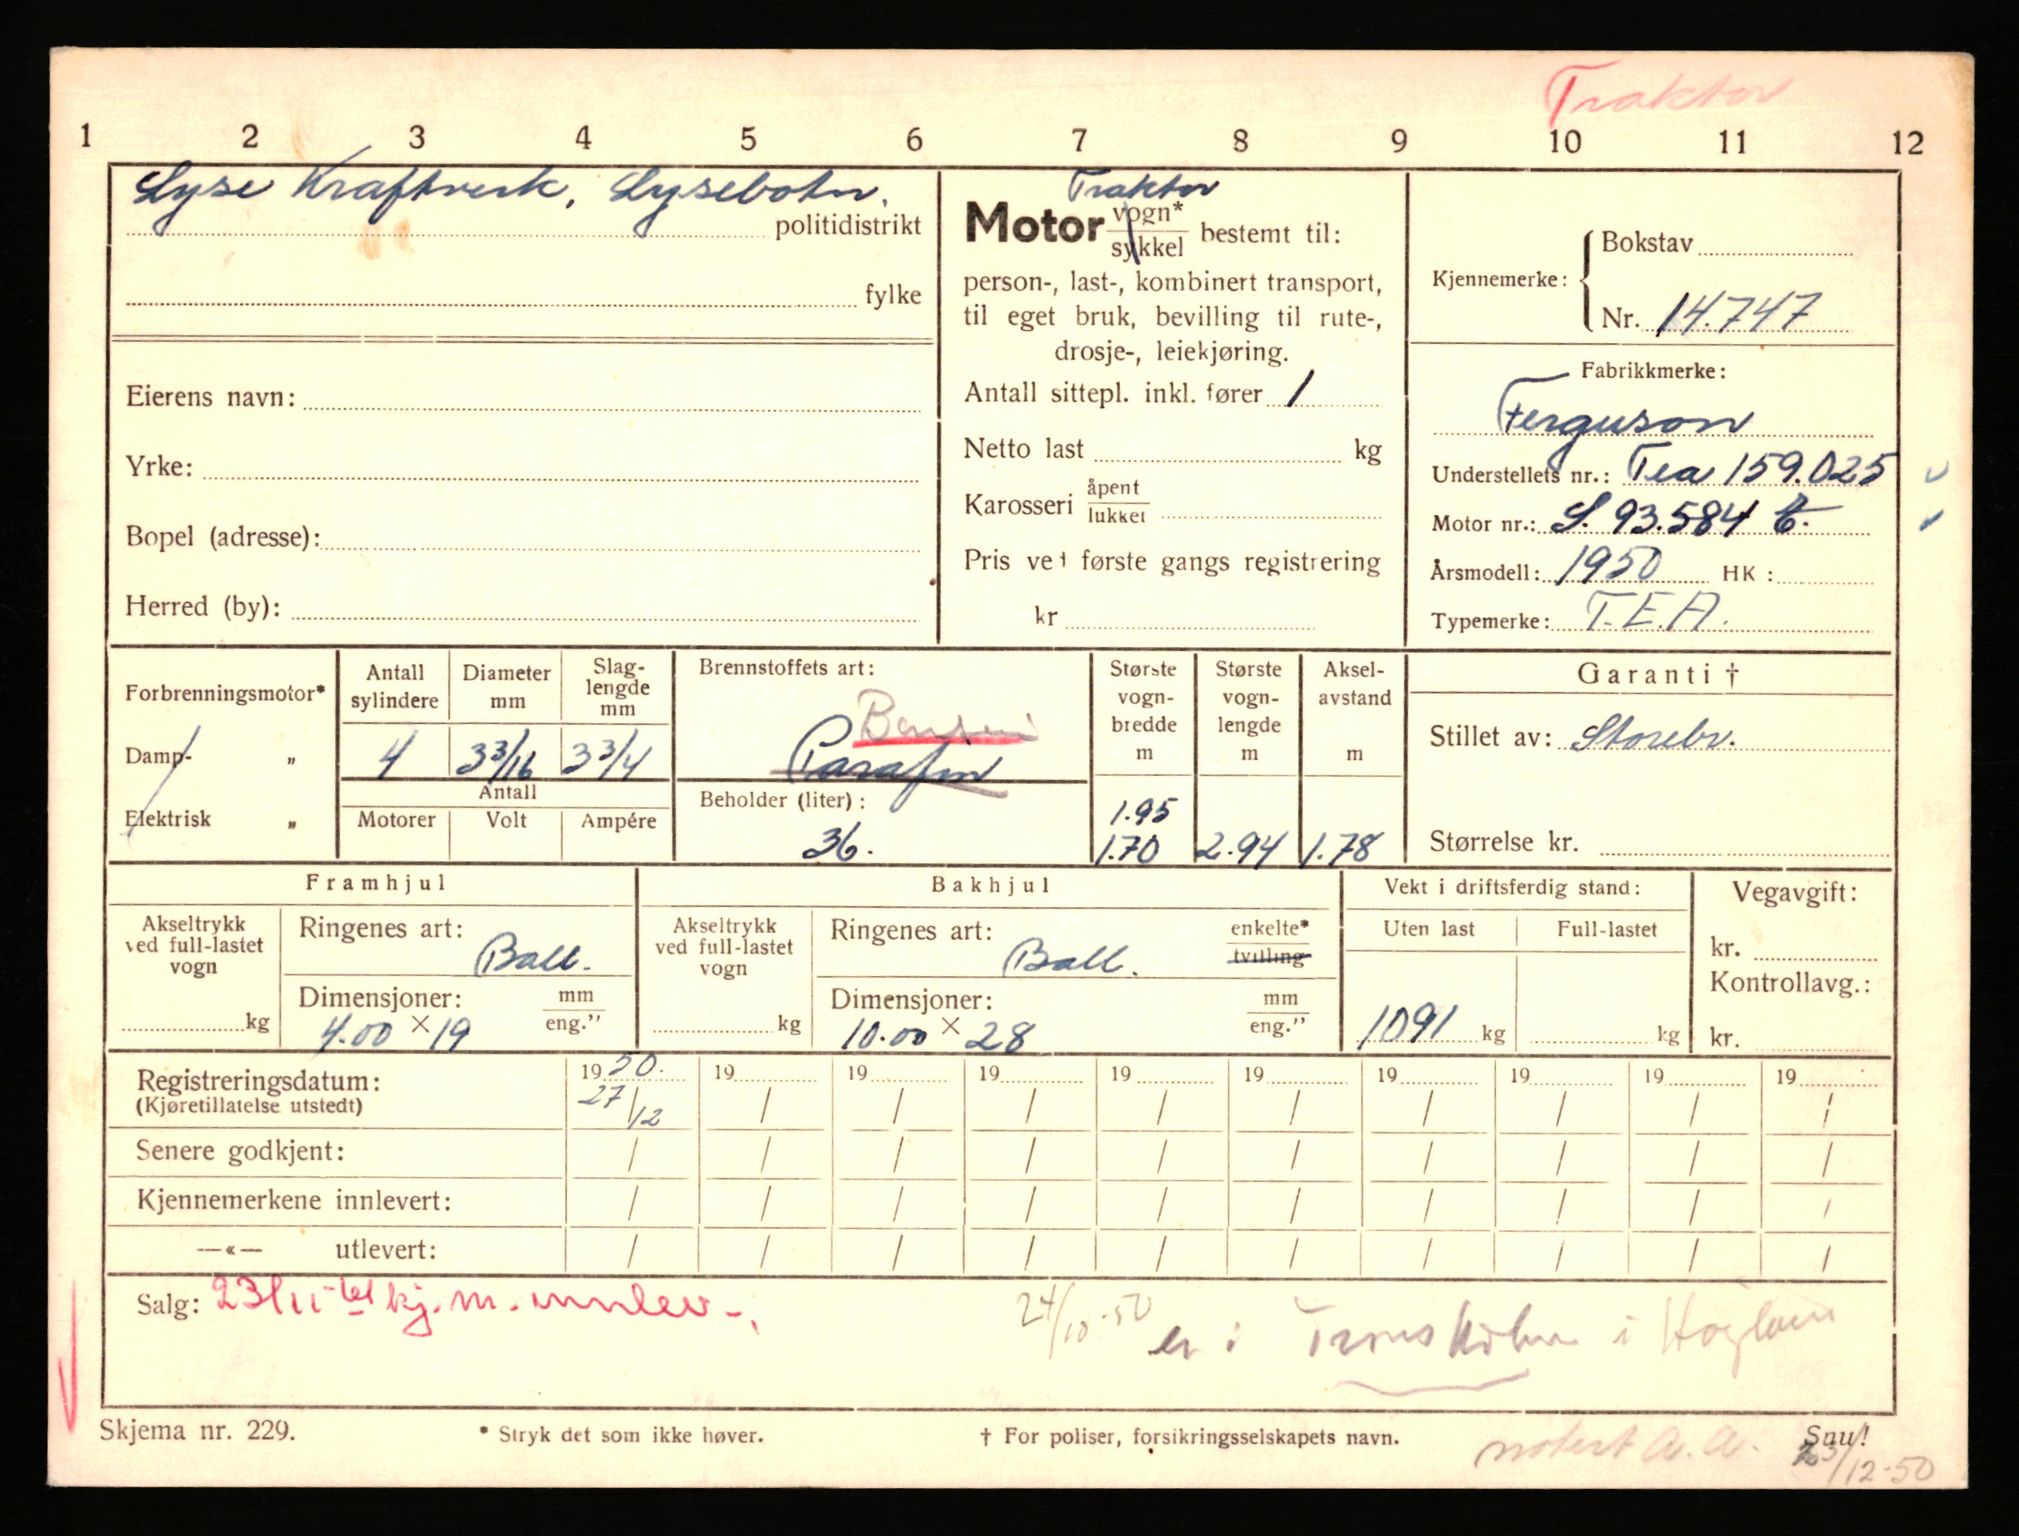 Traktor
1 2 3 4 5 6 7 8 9 10 11 12
Lyse Kraftverk, Lysebotn.
politidistrikt
fylke
Eierens navn:
Yrke:
Bopel (adresse):
Herred (by):
Traktor
Motor vogn* sykkel bestemt til:
person-, last-, kombinert transport,
til eget bruk, bevilling til rute-,
drosje-, leiekjøring.
Antall sittepl. inkl. fører 1
Netto last kg
Karosseri åpent lukket
Pris ved første gangs registrering
kr
Kjennemerke: Bokstav
Nr. 14.747
Fabrikkmerke:
Ferguson
Understellets nr.: Tea 159.025
Motor nr.: S. 93.584 E.
Årsmodell: 1950 HK:
Typemerke: T.E.A.
Forbrenningsmotor*
Damp- „
Elektrisk „
Antall sylindere
Diameter mm
Slag-lengde mm
4 3 3/16 3 3/4
Antall
Motorer Volt Ampére
Brennstoffets art:
Bensin
Parafin
Beholder (liter):
36.
Største vogn-bredde m
1.95
1.70
Største vogn-lengde m
2.94
Aksel-avstand m
1.78
Garanti †
Stillet av: Storebr.
Størrelse kr.
Framhjul
Akseltrykk ved full-lastet vogn
kg
Ringenes art:
Ball.
Dimensjoner: mm eng.”
4.00 × 19
Bakhjul
Akseltrykk ved full-lastet vogn
kg
Ringenes art: enkelte* tvilling
Ball.
Dimensjoner: mm eng.”
10.00 × 28
Vekt i driftsferdig stand:
Uten last Full-lastet
1091 kg kg
Vegavgift:
kr.
Kontrollavg.:
kr.
Registreringsdatum: 1950. 19 19 19 19 19 19 19 19 19
(Kjøretillatelse utstedt) 27/12 / / / / / / / / /
Senere godkjent: / / / / / / / / / /
Kjennemerkene innlevert: / / / / / / / / / /
—«— utlevert: / / / / / / / / / /
Salg: 23/11- kj.m. innlev-.
24/10-50 er i i
Skjema nr. 229.
* Stryk det som ikke høver.
† For poliser, forsikringsselskapets navn.
Snu!
notert 23/12-50